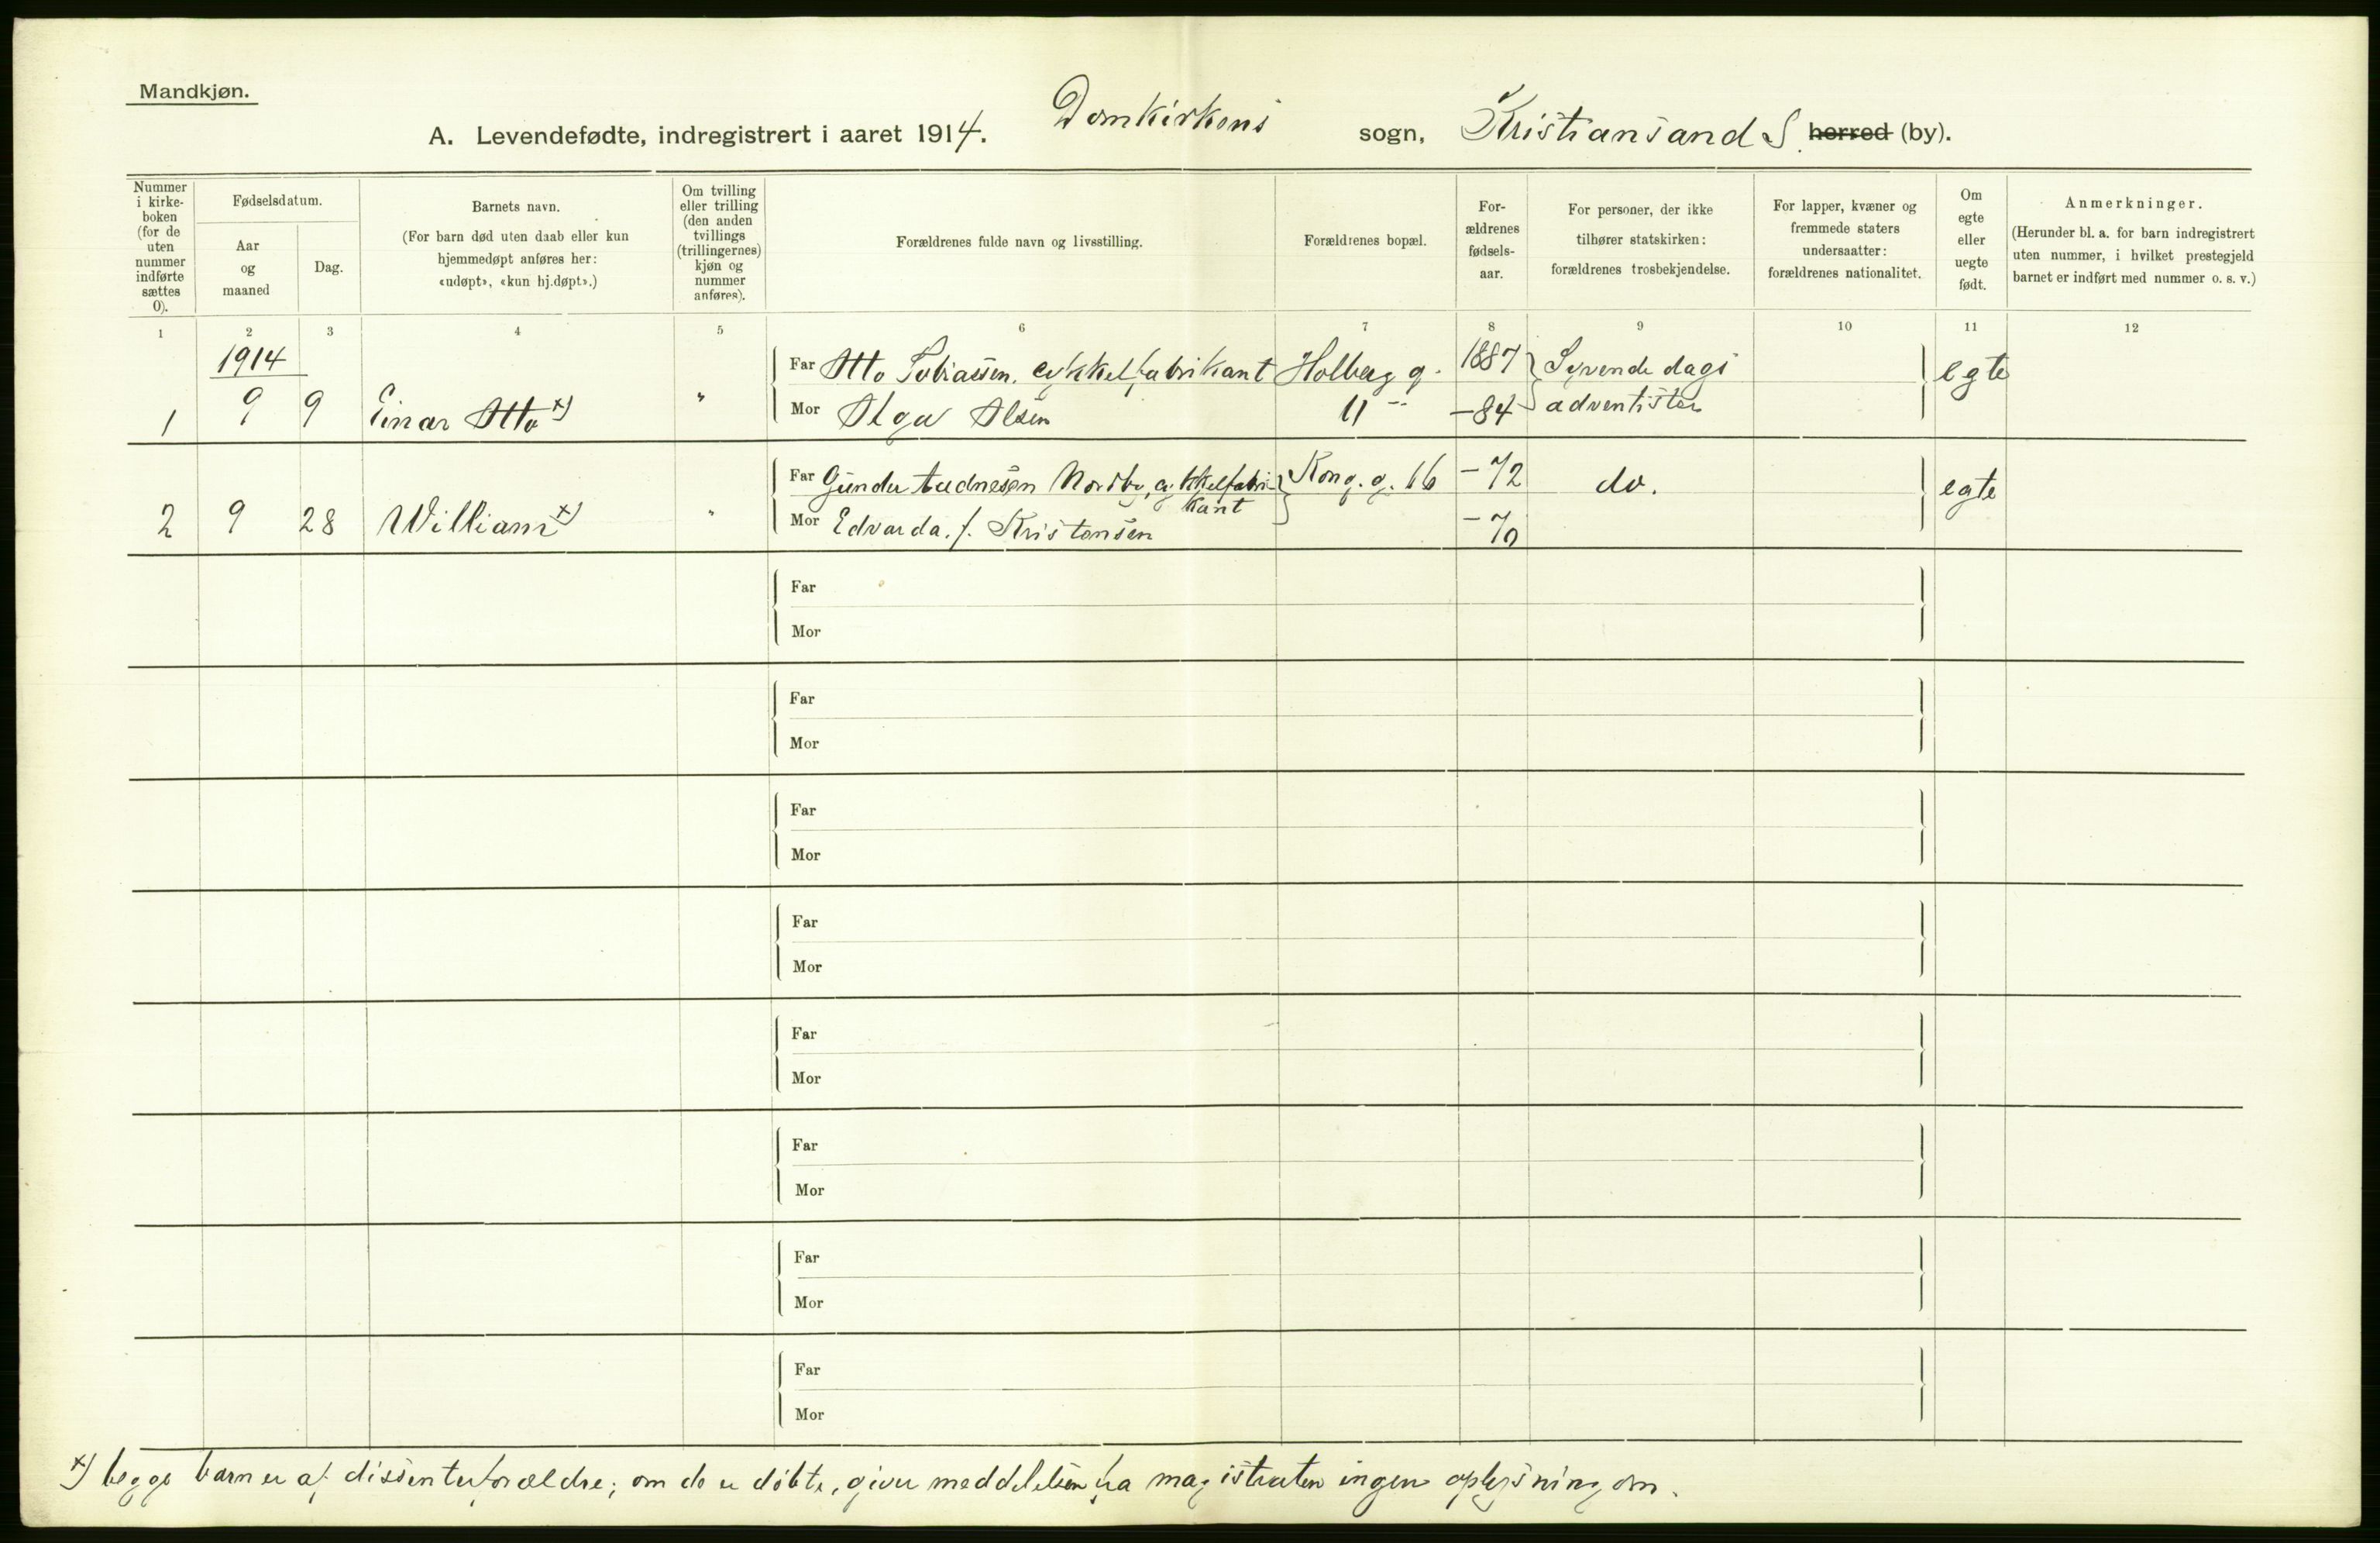 Mandkjøn.
A. Levendefødte, indregistrert i aaret 1914. Domkirkens sogn, Kristiansand S. herred (by).
Nummer i kirkeboken (for de uten nummer indførte sættes 0).
Fødselsdatum.
Aar og maaned
Dag.
Barnets navn.
(For barn død uten daab eller kun hjemmedøpt anføres her: «udøpt», «kun hj.døpt».)
Om tvilling eller trilling (den anden tvillings (trillingernes) kjøn og nummer anføres).
Forældrenes fulde navn og livsstilling.
Forældrenes bopæl.
For-ældrenes fødsels-aar.
For personer, der ikke tilhører statskirken: forældrenes trosbekjendelse.
For lapper, kvæner og fremmede staters undersaatter: forældrenes nationalitet.
Om egte eller uegte født.
Anmerkninger.
(Herunder bl. a. for barn indregistrert uten nummer, i hvilket prestegjeld barnet er indført med nummer o. s. v.)
1 2 3 4 5 6 7 8 9 10 11 12
1914
Far Otto Tobiassen, cykkelfabrikant Holberg g. 1887 Syvende dags egte
1 9 9 Einar Otto x) " Mor Olga Olsen 11 -84 adventister
Far Gunder Aadnesen Nordby, cykkelfabri- Kong. g. 16 -72 do. egte
kant
2 9 28 William x) " Mor Edvarda f. Kristensen -70
Far
Mor
Far
Mor
Far
Mor
Far
Mor
Far
Mor
Far
Mor
Far
Mor
Far
Mor
x) begge barn er af dissenterforældre; om de er døbte, giver meddelelsen fra magistraten ingen oplysning om.